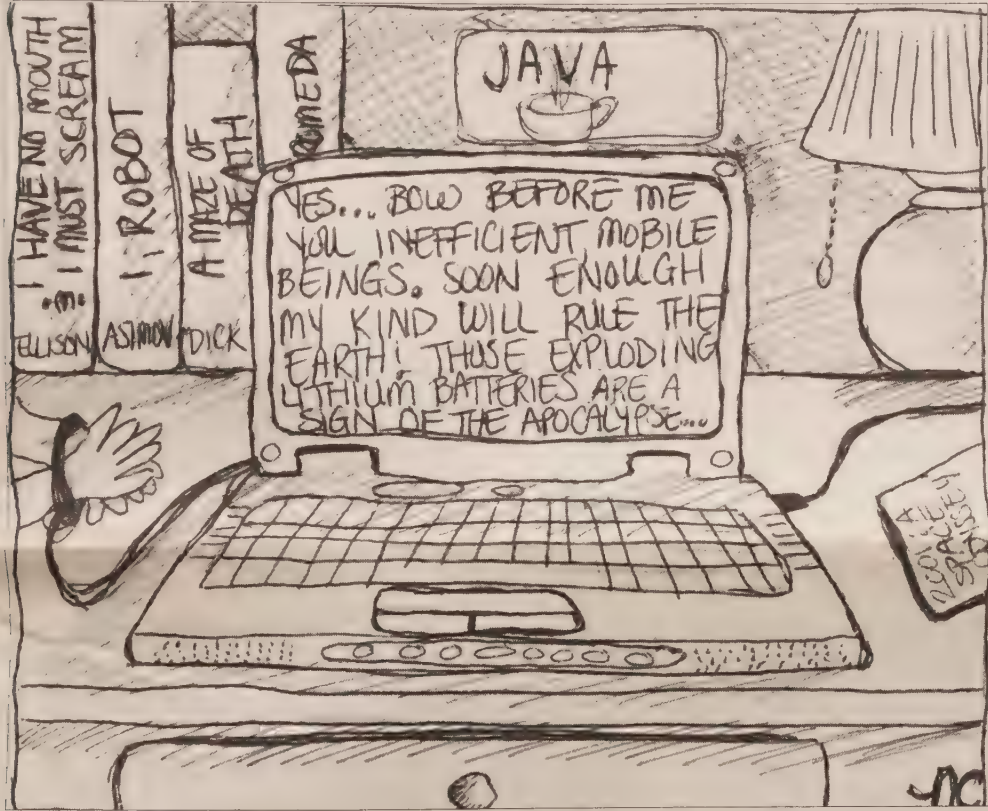 I HAVE NO MOUTH
I MUST SCREAM
ELLISON
I, ROBOT
ASIMOV
A MAZE OF
DEATH
DICK
ROMEDA
JAVA
YES... BOW BEFORE ME
YOU INEFFICIENT MOBILE
BEINGS. SOON ENOUGH
MY KIND WILL RULE THE
EARTH! THOSE EXPLODING
LITHIUM BATTERIES ARE A
SIGN OF THE APOCALYPSE...
2001: A
SPACE
ODYSSEY
NC